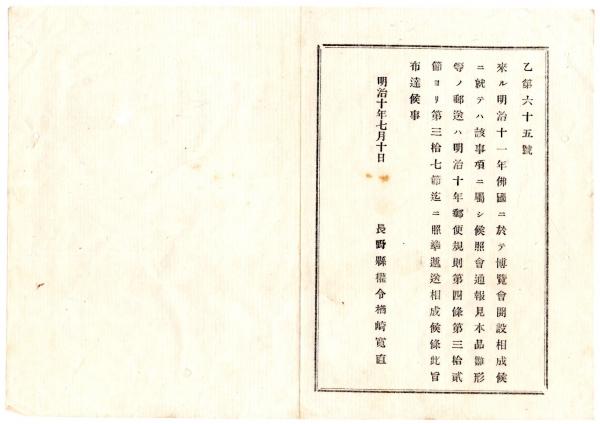 乙第六十五號
來ル明治十一年佛國ニ於テ博覽會開設相成候
ニ就テハ該事項ニ屬シ候照會通報見本品雛形
等ノ郵送ハ明治十年郵便規則第四條第三拾貳
節ヨリ第三拾七節迄ニ照準遞送相成候條此旨
布達候事
明治十年七月十日
長野縣權令楢崎寬直